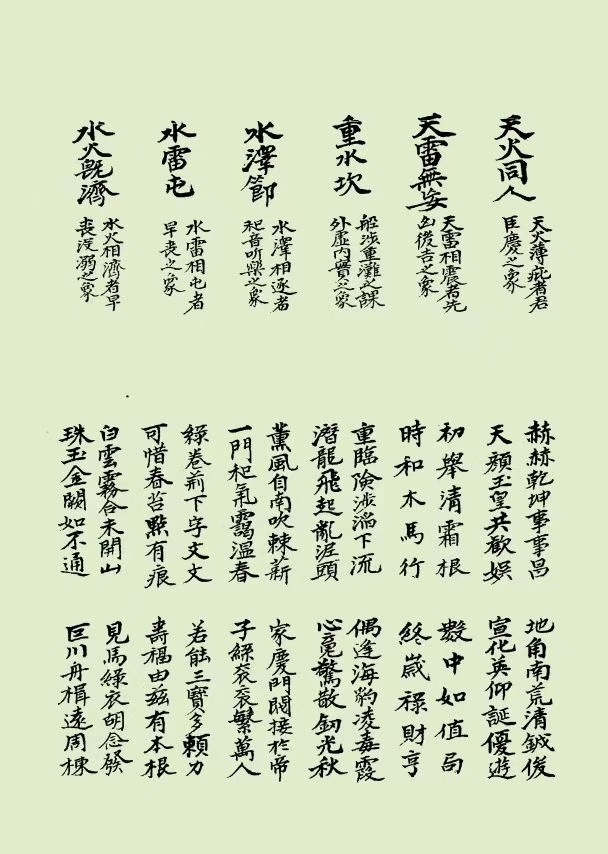 天火同人
天火薄疵者君
臣慶之象
天雷無妄
天雷相震者先
凶後吉之象
重水坎
船涉重灘之課
外虛内實之象
水澤節
水澤相逐者
和音听樂之象
水雷屯
水雷相屯者
早喪之象
水火既濟
水火相濟者早
喪没溺之象
赫赫乾坤事事昌
天顏玉皇共歡娛
初舉清霜根
時和木馬行
重臨險涉湍下流
潛龍飛起亂涯頭
薰風自南吹棘薪
一門和氣靄溫春
綠卷前下字文文
可惜春苔點有痕
白雲霧合未開山
珠玉金闕如不通
地角南荒清鋮俊
宣化英仰誕優遊
數中如值局
終歲祿財亨
偶逢海豹凌毒霞
心竟驚散釼光秋
家慶門闌接於帝
子綵衮衮繁萬人
若能三寶多賴力
壽福由兹有本根
見馬綠衣胡念發
巨川舟楫遠周棟